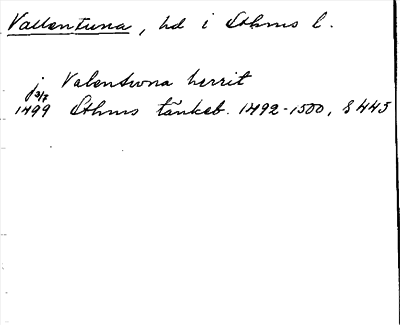 Vallentuna, hd i Sthms l.
j Valentwna herrit
3/7
1499 Sthms tänkeb. 1492-1500, s 445